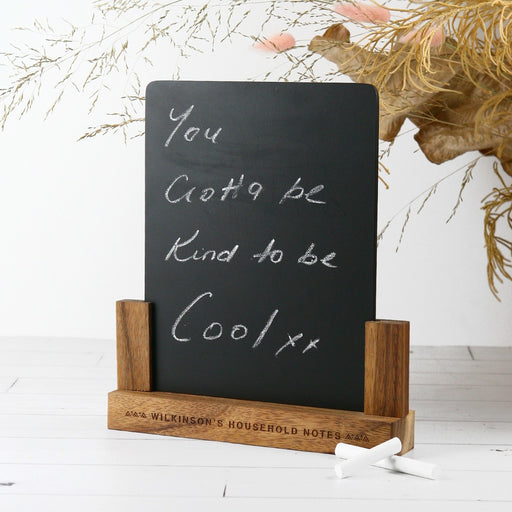 You
Gotta be
Kind to be
Cool xx
WILKINSON'S HOUSEHOLD NOTES